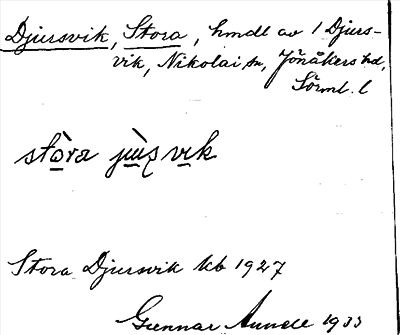 Djursvik, Stora, hmdl av 1 Djurs-
vik, Nikolai sn, Jönåkers hd,
Sörml. l
stòra jùʂvik
Stora Djursvik kb 1927
Gunnar 1933